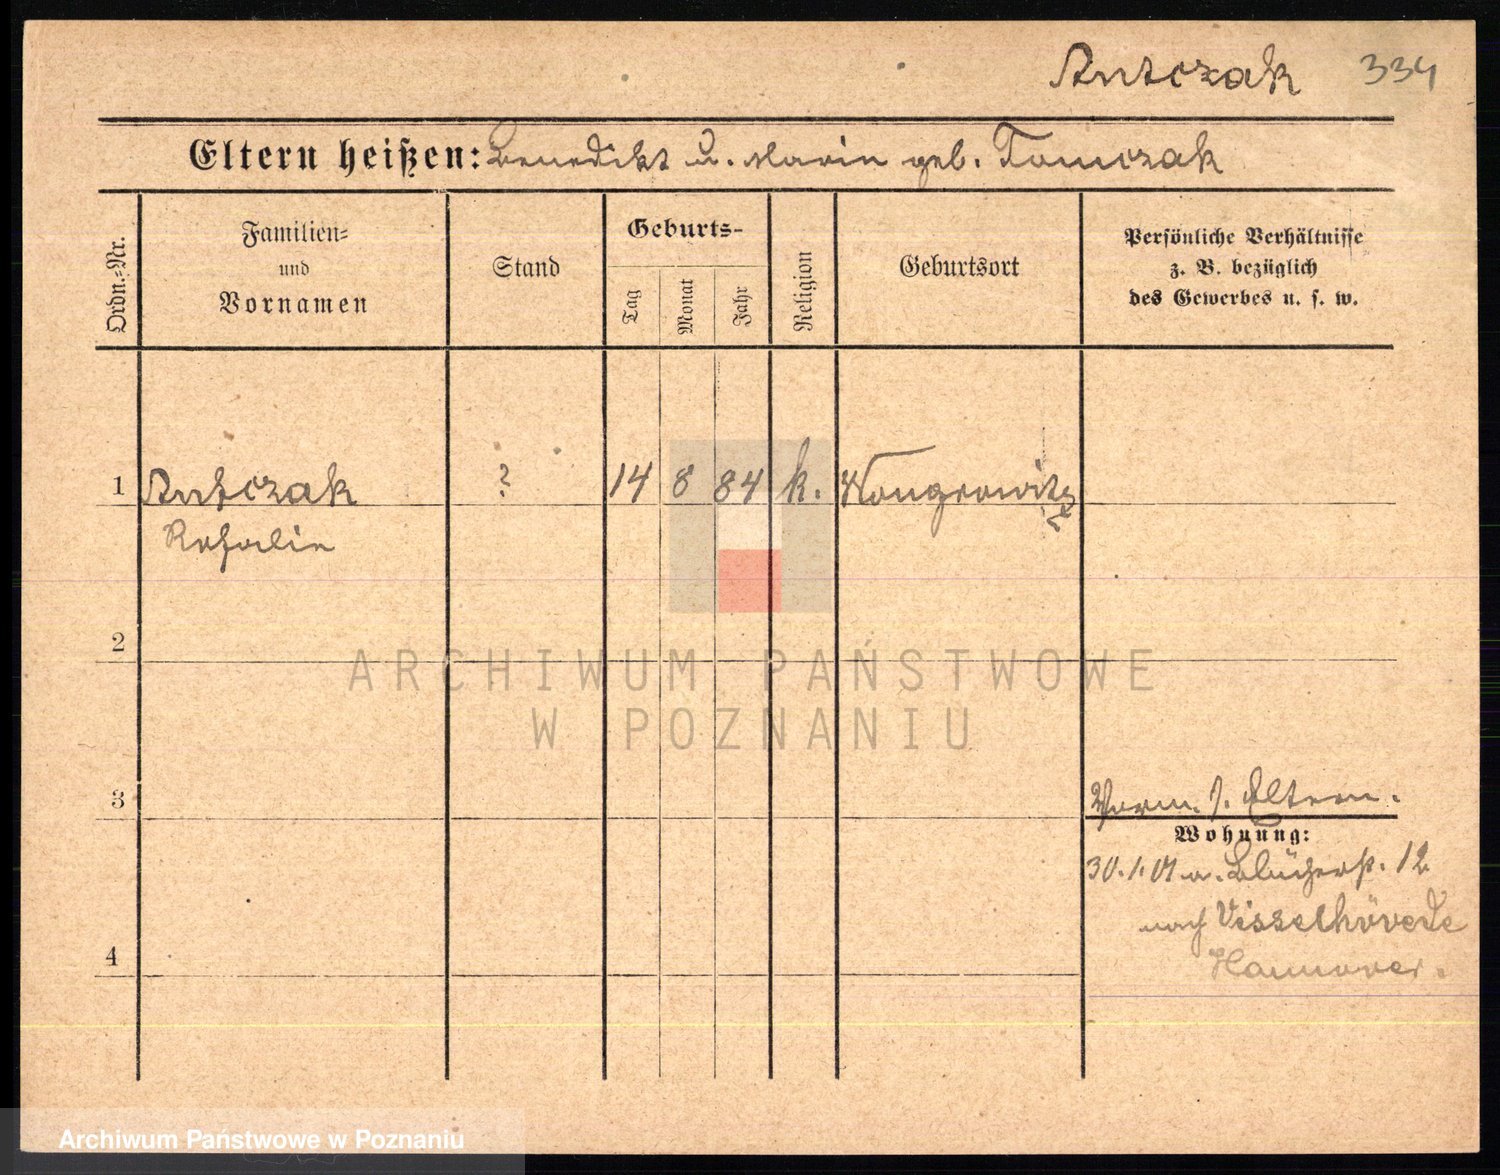 Antczak 334
Eltern heißen: Benedikt u. Marin geb. Tomczak
Ordn.-Nr.
Familien- und Vornamen
Stand
Geburts-
Tag
Monat
Jahr
Religion
Geburtsort
Persönliche Verhältnisse
z. B. bezüglich
des Gewerbes u. s. w.
1 Antczak ? 14 8 84 k. Wongrowitz
2
3
Vorm. s. Eltern.
Wohnung:
30.1.01 a. Blücherst. 12
nach Visselhövede
4
Hannover.
ARCHIWUM PAŃSTWOWE
W POZNANIU
Archiwum Państwowe w Poznaniu